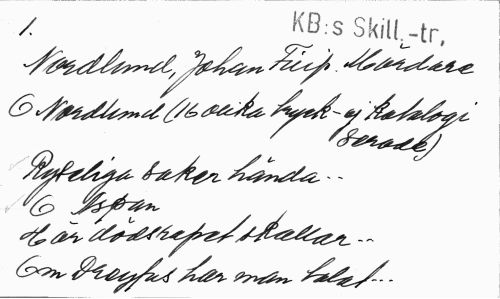 1. KB:s Skill.-tr.
Nordlund, Johan Filip. Mördare
Om Nordlund (16 olika tryck - ej katalogi
serade)
Rysliga saker hända..
Om Aspan
Hör dödsropet skallar..
Om Dreyfus har man talat...